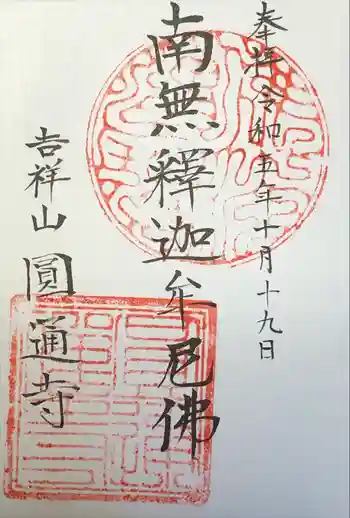 奉拝 令和五年十月十九日
南無釋迦牟尼佛
吉祥山 圓通寺